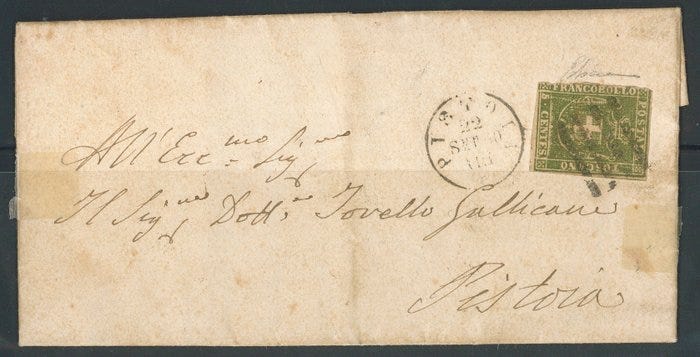 FRANCOBOLLO
POSTALE
CENT. 5
TOSCANO
PISTOIA
22
SET 60
All' Ecc.mo Sig.re
Il Sig.re Dott.e Tovello Gallicane
Pistoia